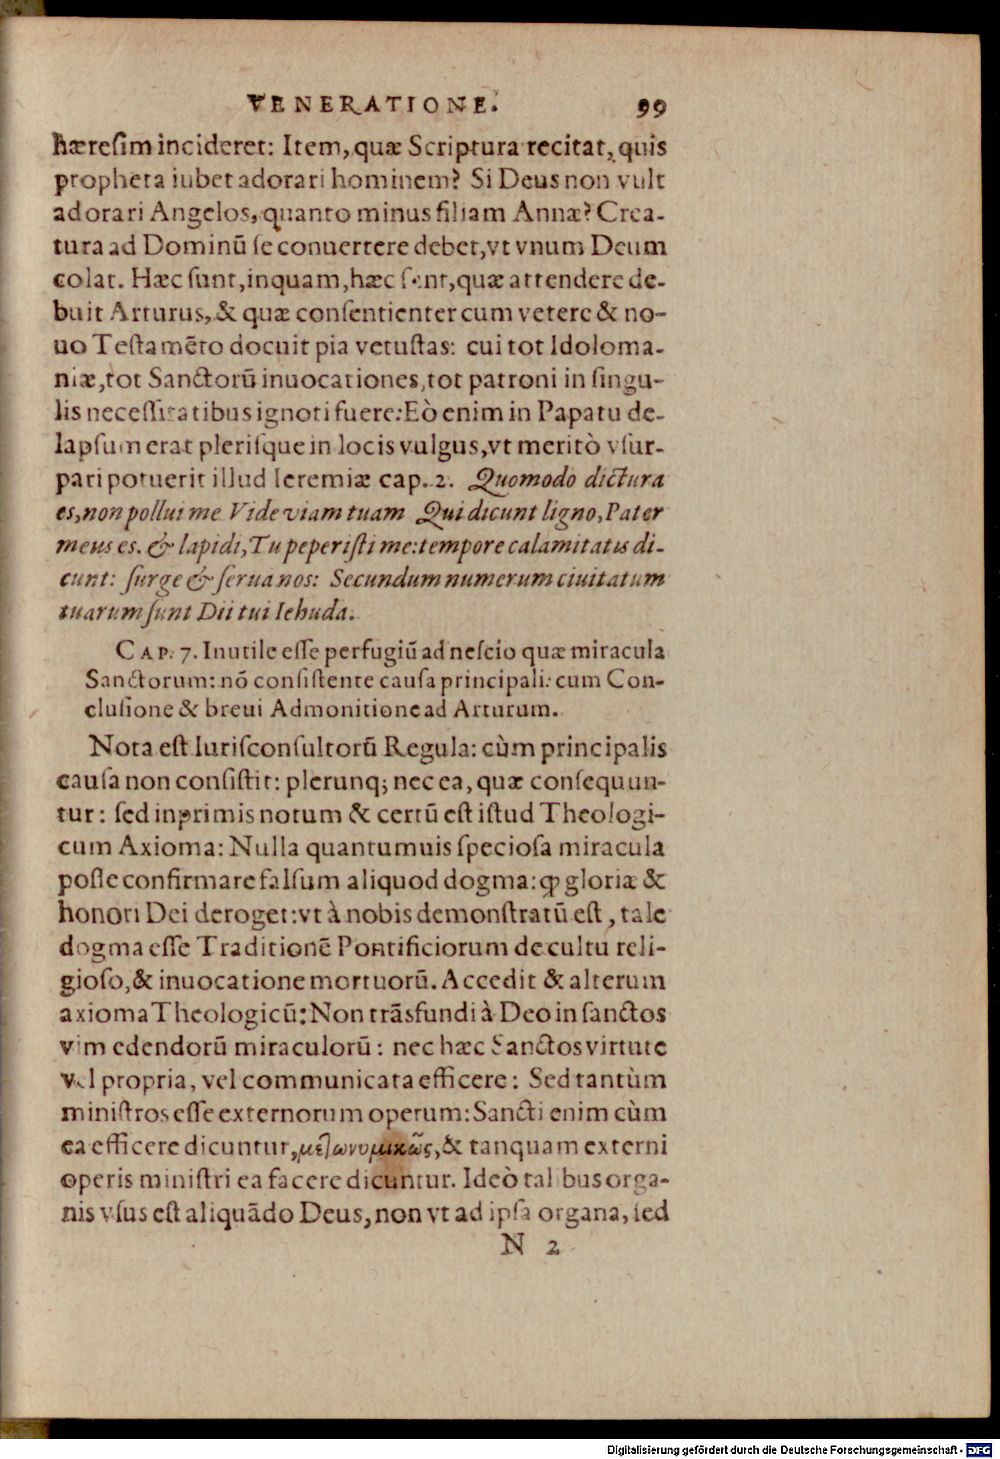 VENERATIONE. 99
hæreſim incideret: Item, quæ Scriptura recitat, quis
propheta iubet adorari hominem? Si Deus non vult
adorari Angelos, quanto minus filiam Annæ? Crea-
tura ad Dominū ſe conuertere debet, vt vnum Deum
colat. Hæc ſunt, inquam, hæc ſunt, quæ attendere de-
buit Arturus, & quæ conſentienter cum vetere & no-
uo Teſtamēto docuit pia vetuſtas: cui tot Idoloma-
niæ, tot Sanctorū inuocationes, tot patroni in ſingu-
lis neceſſitatibus ignoti fuere: Eò enim in Papatu de-
lapſum erat pleriſque in locis vulgus, vt meritò vſur-
pari potuerit illud Ieremiæ cap. 2. Quomodo dictura
es, non pollui me Vide viam tuam Qui dicunt ligno, Pater
meus es. & lapidi, Tu peperiſti me: tempore calamitatis di-
cunt: ſurge & ſerua nos: Secundum numerum ciuitatum
tuarum ſunt Dii tui Iehuda.
CAP. 7. Inutile eſſe perfugiū ad neſcio quæ miracula
Sanctorum: nō conſiſtente cauſa principali: cum Con-
cluſione & breui Admonitione ad Arturum.
Nota eſt Iuriſconſultorū Regula: cùm principalis
cauſa non conſiſtit: plerunq; nec ea, quæ conſequun-
tur: ſed inprimis notum & certū eſt iſtud Theologi-
cum Axioma: Nulla quantumuis ſpecioſa miracula
poſſe confirmare falſum aliquod dogma: ꝙ gloriæ &
honori Dei deroget: vt à nobis demonſtratū eſt, tale
dogma eſſe Traditionē Pontificiorum de cultu reli-
gioſo, & inuocatione mortuorū. Accedit & alterum
axioma Theologicū: Non trāsfundi à Deo in ſanctos
vim edendorū miraculorū: nec hæc Sanctos virtute
vel propria, vel communicata efficere: Sed tantùm
miniſtros eſſe externorum operum: Sancti enim cùm
ea efficere dicuntur, μετωνυμικῶς, & tanquam externi
operis miniſtri ea facere dicuntur. Ideò talibus orga-
nis vſus eſt aliquādo Deus, non vt ad ipſa organa, ſed
N 2
Digitalisierung gefördert durch die Deutsche Forschungsgemeinschaft - DFG